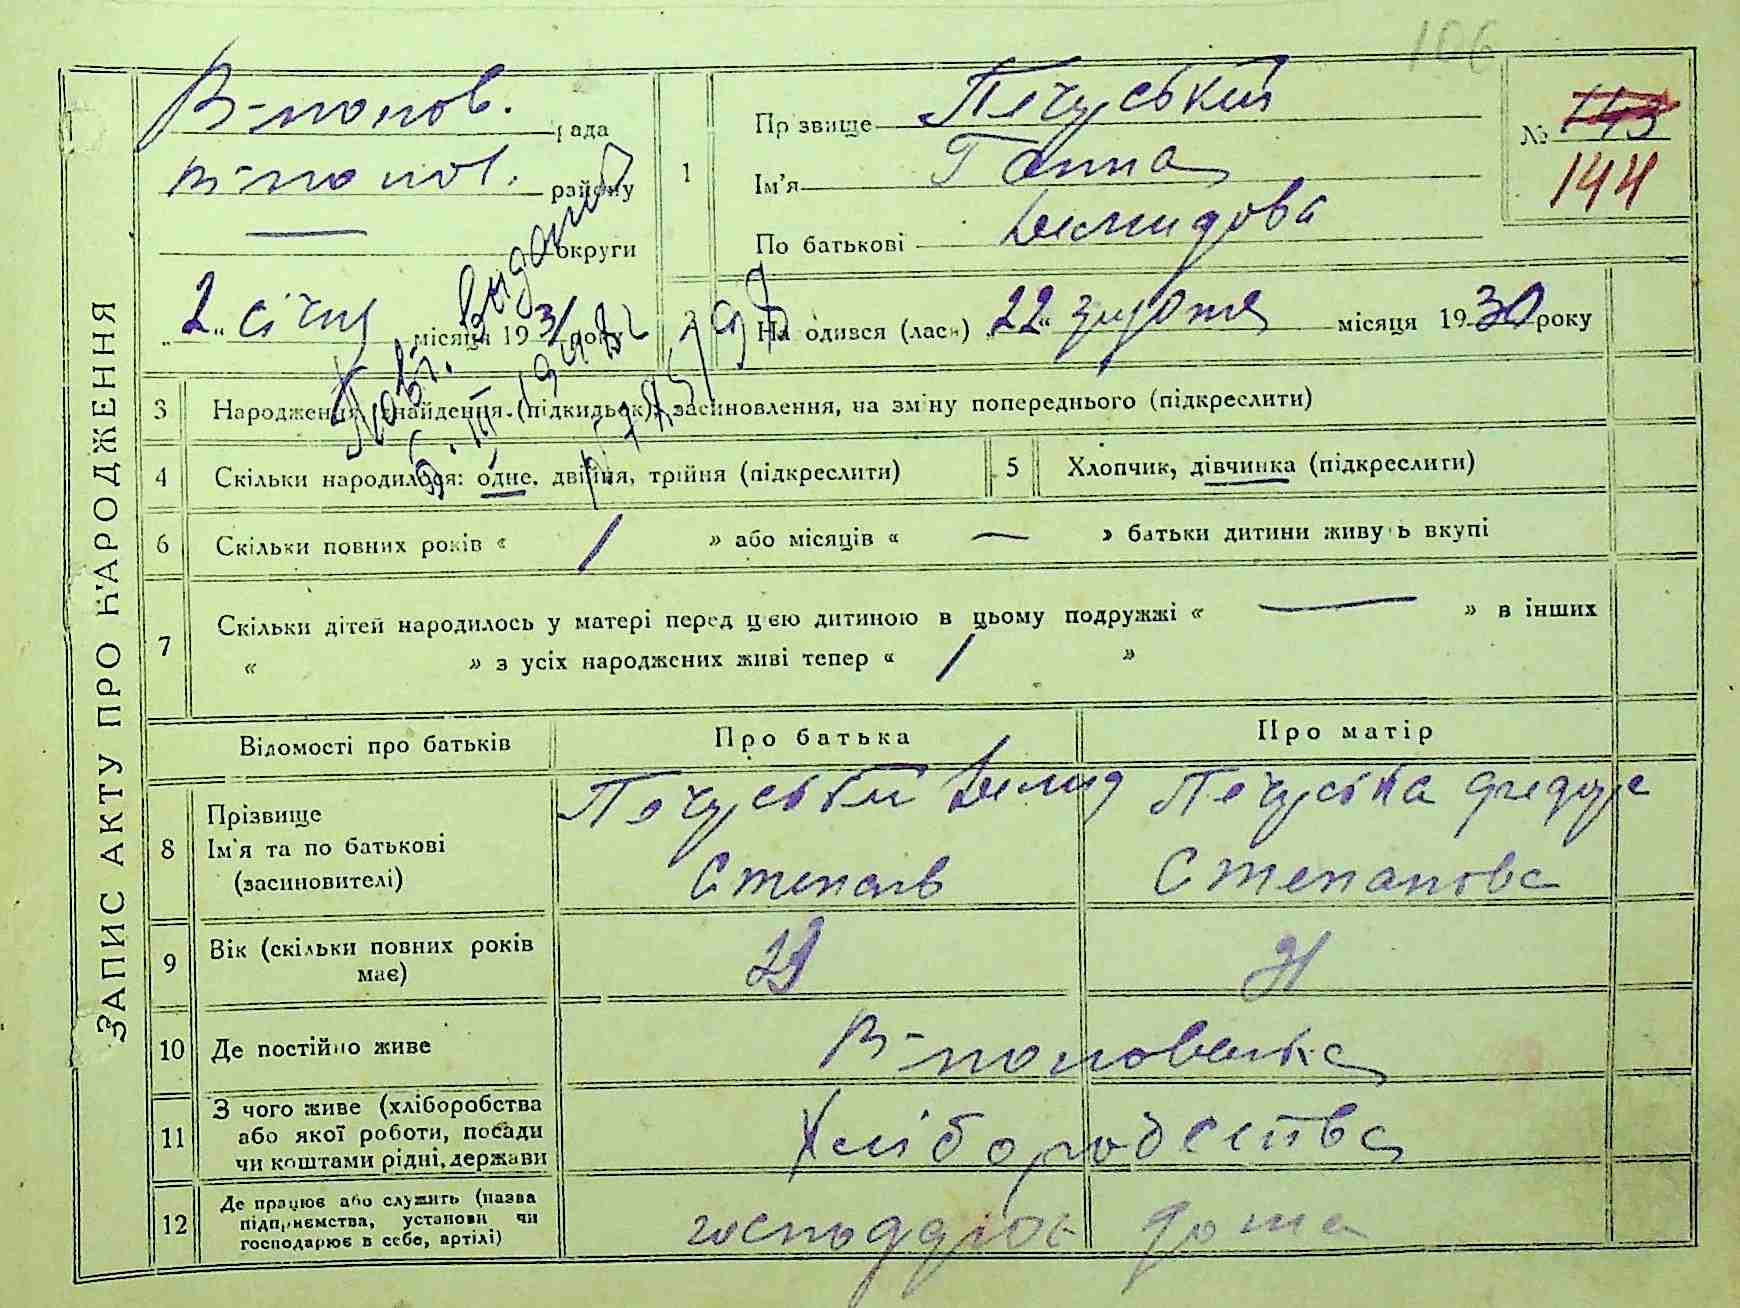 106
ЗАПИС АКТУ ПРО НАРОДЖЕННЯ
В-попов. рада
В-попов. району
округи
„2„ січня місяця 1931 року
Повт. виданий
1
Прізвище Печурський
Ім'я Ганна
По батькові Демидова
№ 143
144
2 Народився (лась) „22“ грудня місяця 1930 року
3 Народження, знайдення (підкидьок), засиновлення, на зміну попереднього (підкреслити)
4 Скільки народилося: одне, двійня, трійня (підкреслити)
5 Хлопчик, дівчинка (підкреслити)
6 Скільки повних років « 1 » або місяців « — » батьки дитини живуть вкупі
7 Скільки дітей народилось у матері перед цією дитиною в цьому подружжі « — » в інших
« » з усіх народжених живі тепер « 1 »
Відомості про батьків Про батька Про матір
8 Прізвище
Ім'я та по батькові
(засиновителі)
Печурськи Демид
Степанів
Печурська
Степанова
9 Вік (скільки повних років
має)
10 Де постійно живе
В-поповська
11 З чого живе (хліборобства
або якої роботи, посади
чи коштами рідні, держави
Хліборобства
12 Де працює або служить (назва
підприємства, установи чи
господарює в себе, артілі)
дома